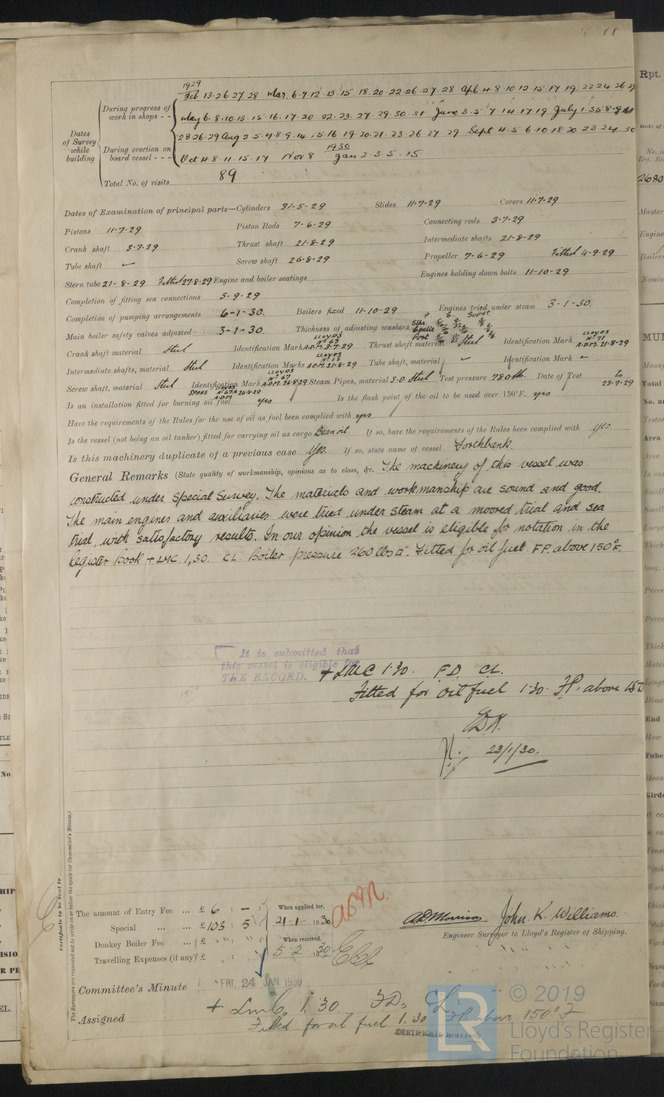 1929
Feb 13·26·27·28 Mar. 6·7·12·13·15·18·20·22·26·27·28 Apl 4·8·10·12·15·17·19·22·24·26·29
During progress of work in shops - -
May 6·8·10·13·15·16·17·20·22·23·27·29·30·31 June 3·5·7·14·17·19 July 1·3·5·8·9·10
Dates of Survey while building
23·26·29 Aug 2·5·4·8·9·14·15·16·19·20·21·23·26·27·29 Sept 4·5·6·10·18·20·23·24·30
During erection on board vessel - - -
1930
Oct 4·8·11·15·17 Nov 8 Jan 2·3·5·15
Total No. of visits 89
Dates of Examination of principal parts—Cylinders 31-5-29 Slides 11-7-29 Covers 11-7-29
Pistons 11-7-29 Piston Rods 7-6-29 Connecting rods 3-7-29
Crank shaft 3-7-29 Thrust shaft 21-8-29 Intermediate shafts 21-8-29
Tube shaft ✓ Screw shaft 26-8-29 Propeller 7-6-29 Fitted 4-9-29
Stern tube 21-8-29 Fitted 27-8-29 Engine and boiler seatings Engines holding down bolts 11-10-29
Completion of fitting sea connections 5-9-29
Completion of pumping arrangements 6-1-30. Boilers fixed 11-10-29 Engines tried under steam 3-1-30.
Main boiler safety valves adjusted 3-1-30 Thickness of adjusting washers
Crank shaft material Steel Identification Mark LLOYDS A.D.M. 3-7-29 Thrust shaft material Steel Identification Mark LLOYDS A.D.M. 21-8-29
Intermediate shafts, material Steel Identification Marks LLOYDS A.D.M. 21-8-29 Tube shaft, material ✓ Identification Mark ✓
Screw shaft, material Steel Identification Mark LLOYDS A.D.M. 26-8-29 Steam Pipes, material S.D. Steel Test pressure 780 lbs. Date of Test to 22-9-29
Is an installation fitted for burning oil fuel yes Is the flash point of the oil to be used over 150°F. yes
Have the requirements of the Rules for the use of oil as fuel been complied with yes
Is the vessel (not being an oil tanker) fitted for carrying oil as cargo Bean oil If so, have the requirements of the Rules been complied with yes
Is this machinery duplicate of a previous case Yes If so, state name of vessel Forthbank.
General Remarks (State quality of workmanship, opinions as to class, &c. The machinery of this vessel was
constructed under Special Survey. The materials and workmanship are sound and good.
The main engines and auxiliaries were tried under steam at a moored trial and sea
trial, with satisfactory results. In our opinion the vessel is eligible for notation in the
Register Book + LMC 1,30. CL Boiler pressure 260 lbs □". Fitted for oil fuel. F.P. above 150°F.
It is submitted that
this vessel is eligible for
THE RECORD. + LMC 1·30. F.D. CL.
Fitted for oil fuel 1·30. F.P. above 150
23/1/30.
Certificate to be sent to
The amount of Entry Fee ... £ 6 : – :
When applied for,
Special ... £ 103 : 5 : 21-1-1930
Donkey Boiler Fee ... £
When received,
Travelling Expenses (if any) £ 5-2 30
A D Morrison John K. Williams.
Engineer Surveyor to Lloyd's Register of Shipping.
Committee's Minute FRI. 24 JAN 1930
Assigned + LMC. 1.30 F.D. CL
Fitted for oil fuel 1.30 F.P. above 150°F
© 2019
Lloyd's Register
Foundation
LR
Rpt.